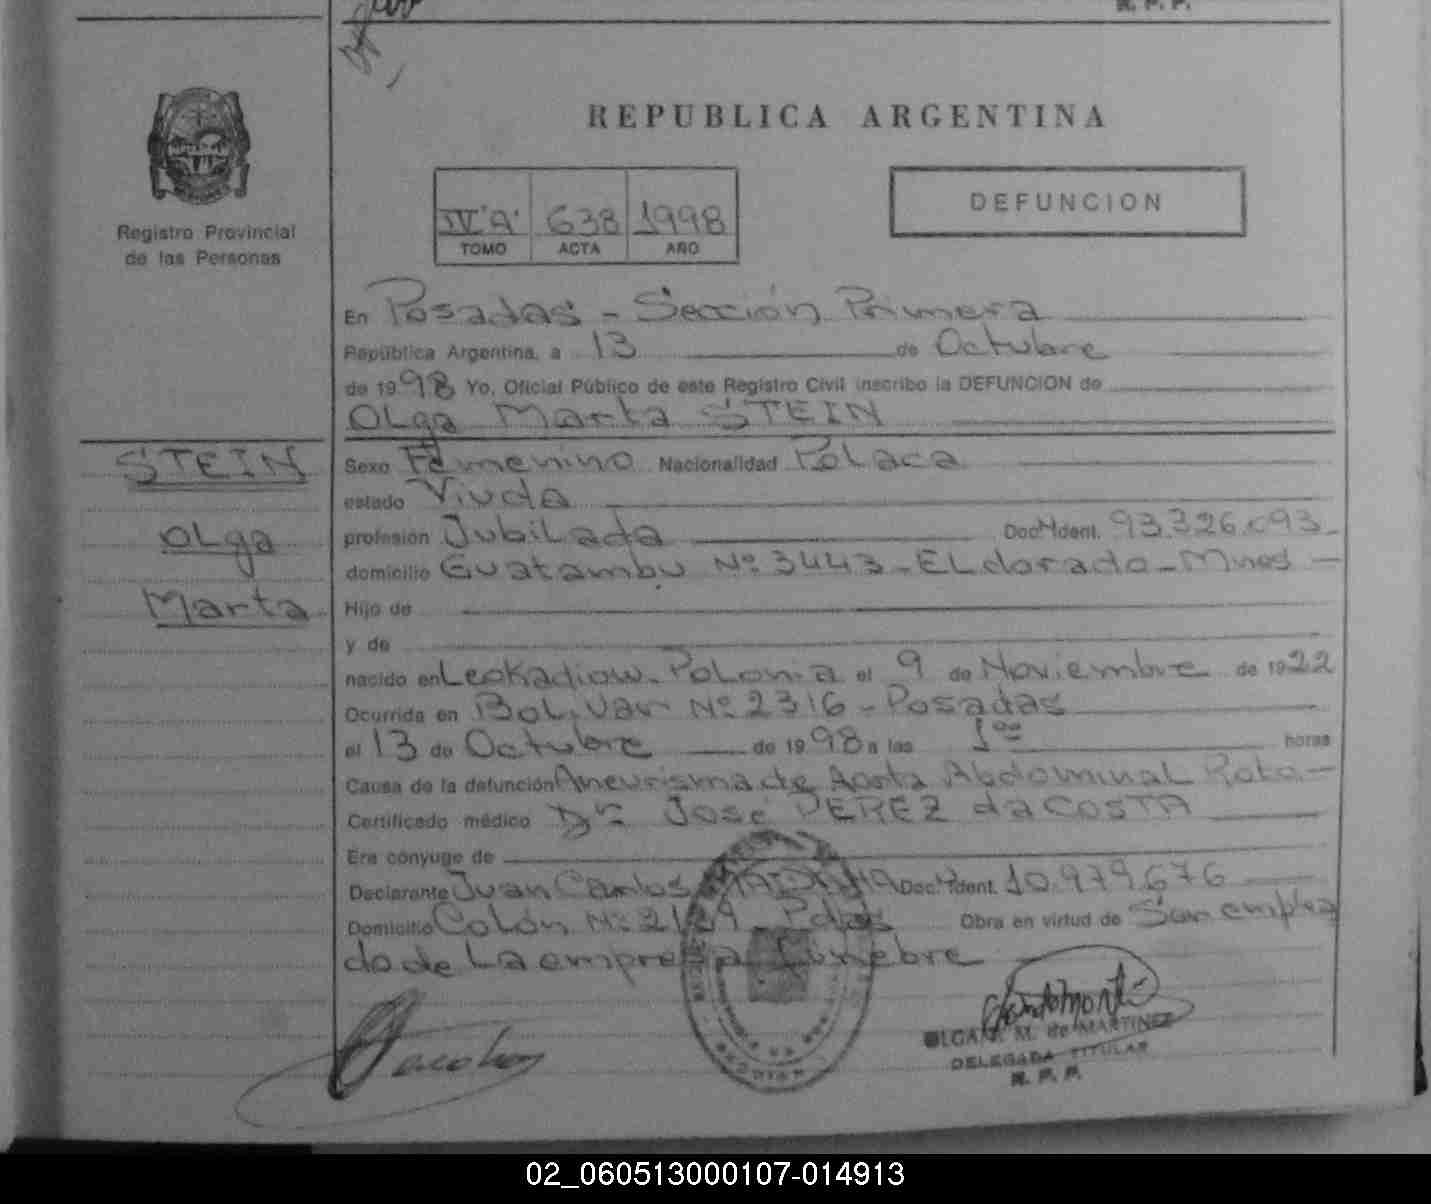 R. P. P.
REPUBLICA ARGENTINA
DEFUNCION
IV "A" 638 1998
TOMO ACTA AÑO
Registro Provincial
de las Personas
En Posadas - Sección Primera
República Argentina, a 13 de Octubre
de 1998 Yo, Oficial Público de este Registro Civil inscribo la DEFUNCION de
Olga Marta STEIN
STEIN
Olga
Marta
Sexo Femenino Nacionalidad Polaca
estado Viuda
profesión Jubilada Doc. Ident. 93.326.093
domicilio Guatambu Nº 3443 - Eldorado - Mnes -
Hijo de
y de
nacido en Leokadiow - Polonia el 9 de Noviembre de 1922
Ocurrida en Bolivar Nº 2316 - Posadas
el 13 de Octubre de 1998 a las 1 00 horas
Causa de la defunción Aneurisma de Aorta Abdominal Roto -
Certificado médico Dr. José PEREZ da COSTA
Era cónyuge de
Declarante Juan Carlos Doc. Ident. 10.979.676
Domicilio Colón Nº Pdas Obra en virtud de Ser emplea
do de La empresa Fúnebre
OLGA M. de MARTINEZ
DELEGADA TITULAR
R. P. P.
02_060513000107-014913